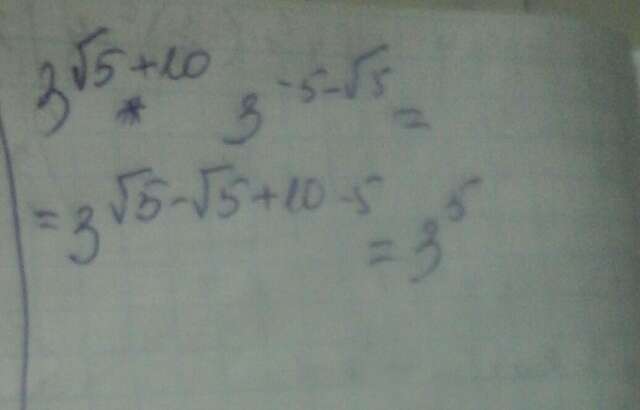 3^{√5+10} * 3^{-5-√5} =
= 3^{√5-√5+10-5} = 3^5